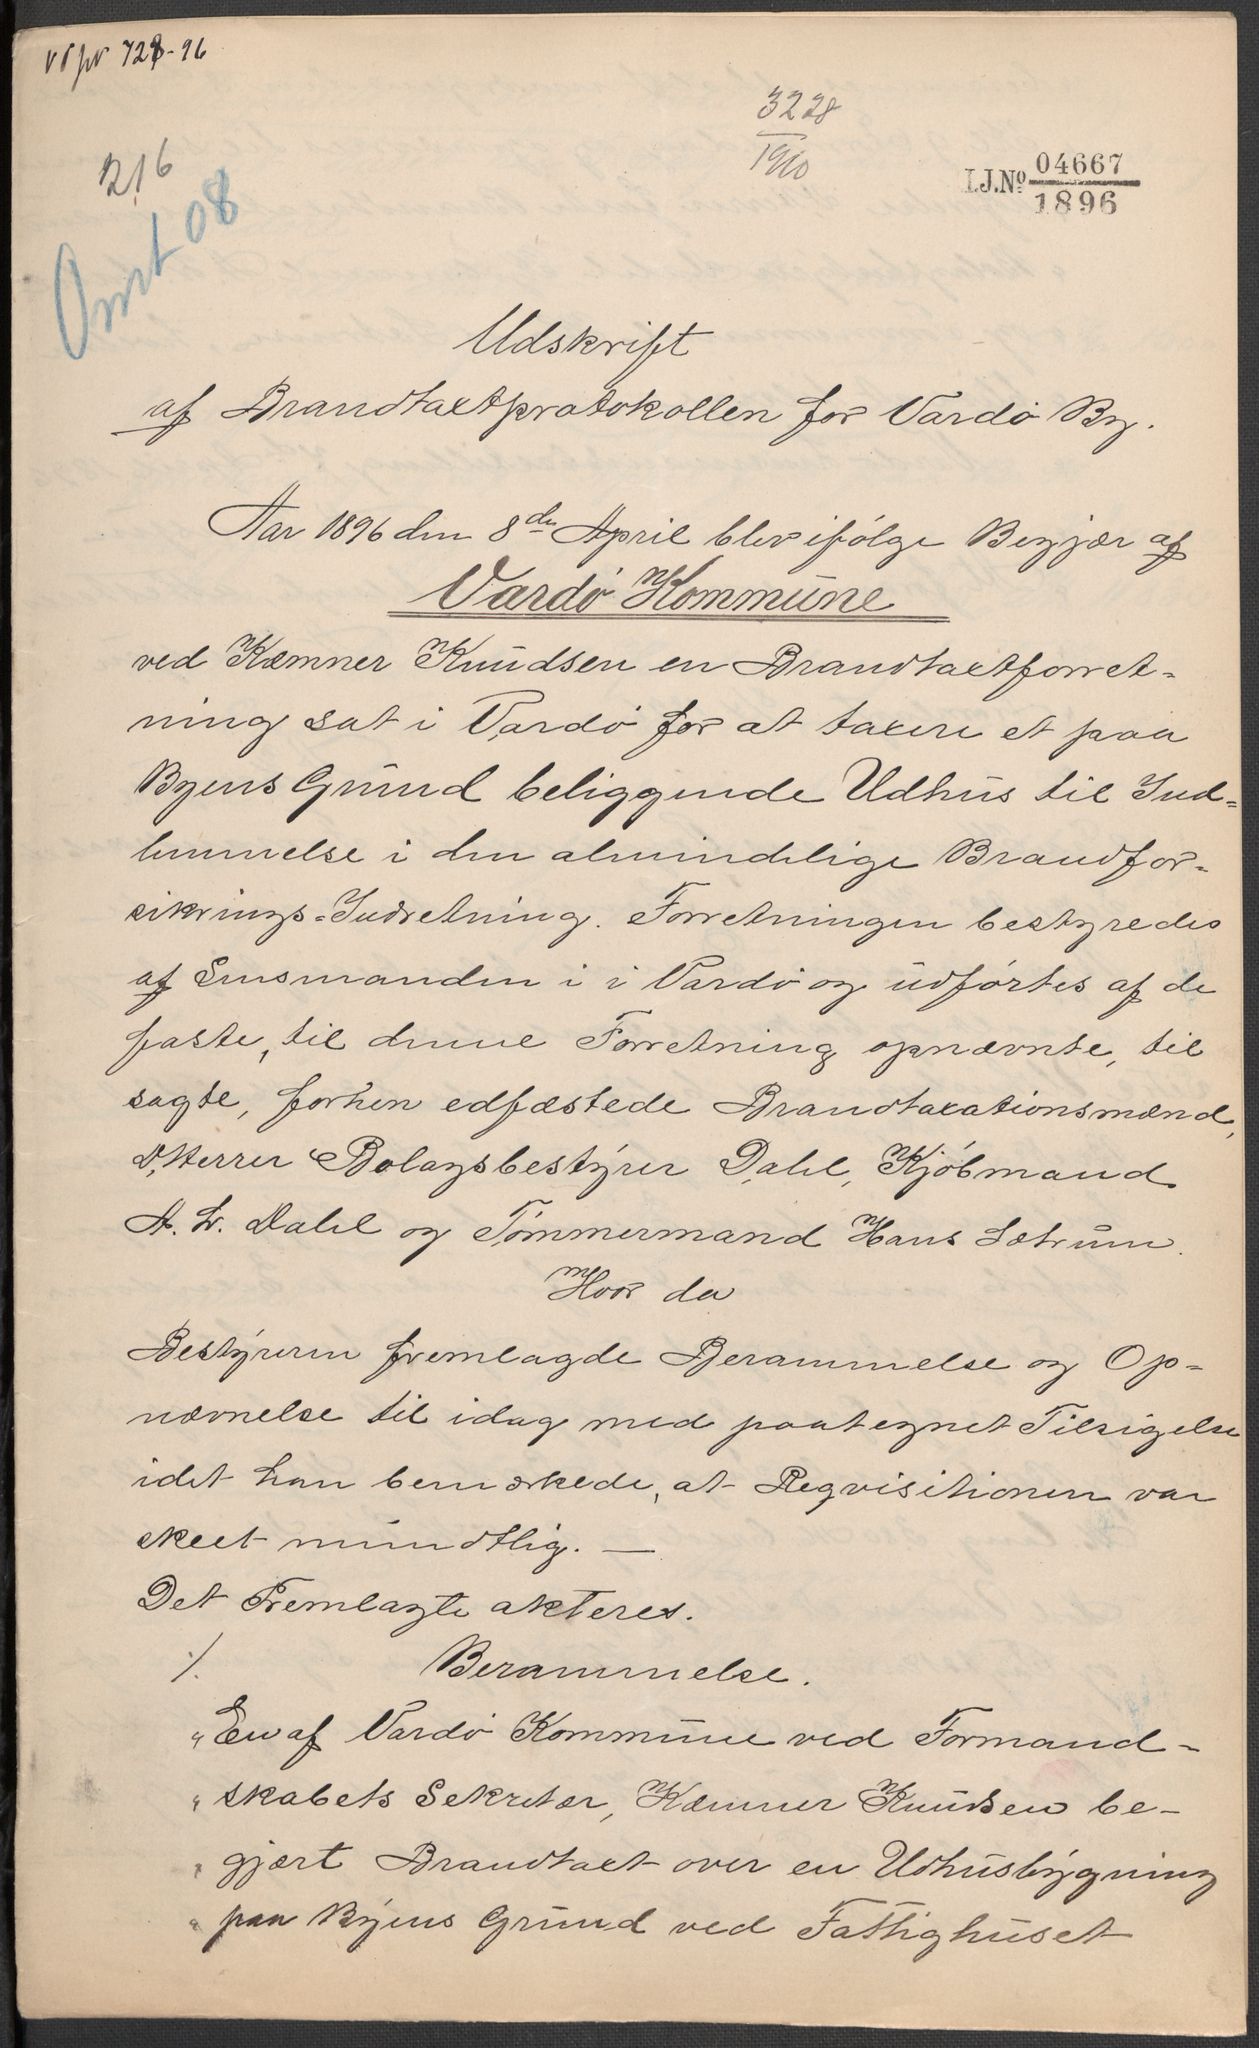 728-96
3228
1910
216
Omt 08
I.J.No 04667
1896
Udskrift
af Brandtaxtprotokollen for Vardø By.
Aar 1896 den 8de April blev ifølge Begjær af
Vardø Kommune
ved Kæmner Knudsen en Brandtaxtforret-
ning sat i Vardø for at taxere et paa
Byens Grund beliggende Udhus til Ind-
lemmelse i den almindelige Brandfor-
sikrings-Indretning. Forretningen bestyredes
af Lensmanden i i Vardø og udførtes af de
faste, til denne Forretning opnævnte, til
sagte, forhen edfæstede Brandtaxationsmænd,
D'Herrer Bolagsbestyrer Dahl, Kjøbmand
A. L. Dahl og Tømmermand Hans Sætrum.
Hvor da
Bestyreren fremlagde Berammelse og Op-
nævnelse til idag med paategnet Tilsigelse
idet han bemærkede, at Reqvisitionen var
skeet mundtlig. —
Det Fremlagte akteres.
./. Berammelse.
"En af Vardø Kommune ved Formand-
"skabets Sekretær, Kæmner Knudsen be-
"gjært Brandtaxt over en Udhusbygning
"paa Byens Grund ved Fattighuset